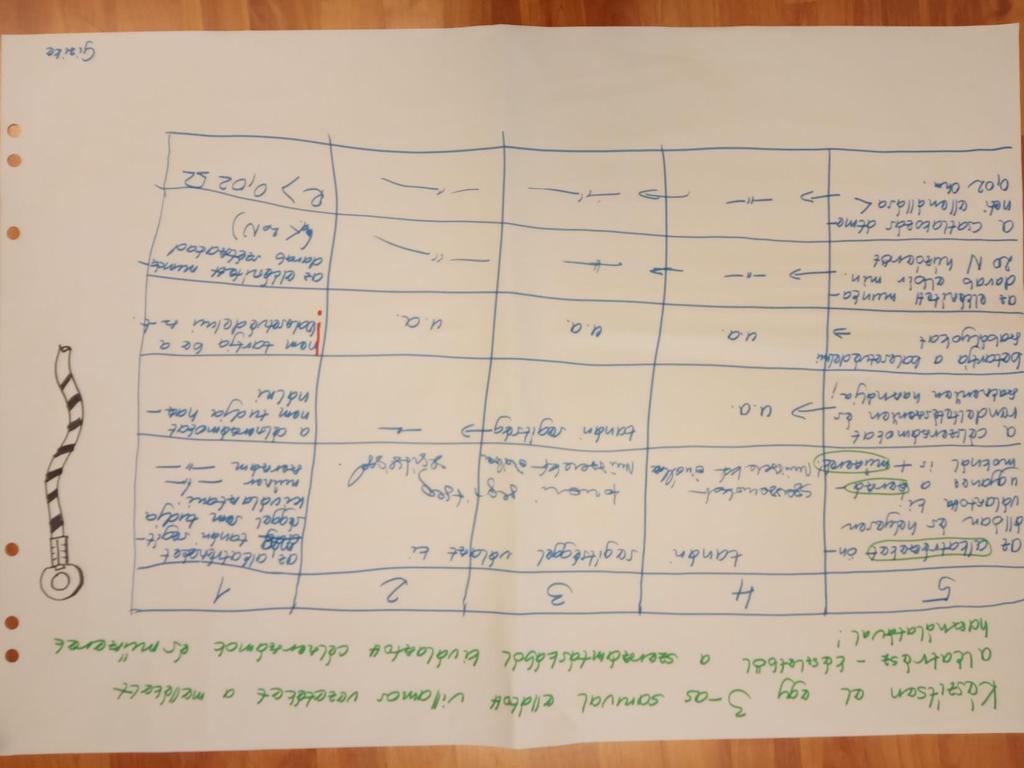 Készítsen el egy 3-as saruval ellátott villamos vezetéket a mellékelt
alkatrész-készletből a szerszámtáskából kiválasztott célszerszámok és műszerek
használatával!
5
4
3
2
1
az alkatrészeket ön-
állóan és helyesen
választom ki,
ugyanez a
szerszá
moknál is + műszerek
tanári
segítséggel
választ ki
szerszámokat
tanári
segítség
az alkatrészeket
tanári segít-
séggel sem tudja
kiválasztani
műszer —〃—
szerszám —〃—
a célszerszámokat
rendeltetésszerűen és
szakszerűen használja;
→ u.a.
tanári segítség
→
←
a célszerszámokat
nem tudja hasz-
nálni
betartja a balesetvédelmi
szabályokat
→
u.a.
u.a.
u.a.
nem tartja be a
balesetvédelmi
az elkészített munka-
darab elbír min.
20 N húzóerőt
→ —〃— →
—〃—
—〃—
az elkészített munka-
darab szétszakad
(< 20N)
a csatlakozás átme-
neti ellenállása <
0,02 Ohm.
→ —〃— →
—〃—
—〃—
R > 0,02 Ω
Gizike